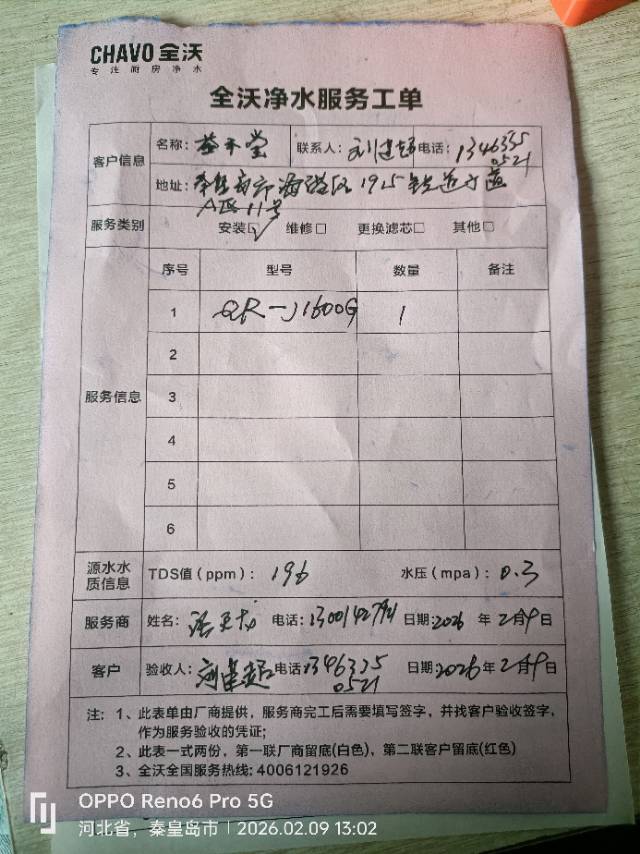 CHAVO 全沃
专注厨房净水
全沃净水服务工单
客户信息
名称: 茶木堂 联系人: 刘建超 电话: 13463350521
地址: 秦皇岛市海港区1915铁道
A区11号
服务类别 安装☑ 维修□ 更换滤芯□ 其他□
服务信息
序号 型号 数量 备注
1 QR-J1600G 1
2
3
4
5
6
源水水质信息 TDS值（ppm）: 196 水压（mpa）: 0.3
服务商 姓名: 电话: 日期: 2026 年 2月9日
客户 验收人: 刘建超 电话 13463350521 日期: 2026年 2月9日
注: 1、此表单由厂商提供，服务商完工后需要填写签字，并找客户验收签字，
作为服务验收的凭证;
2、此表一式两份，第一联厂商留底(白色)，第二联客户留底(红色)
3、全沃全国服务热线: 4006121926
OPPO Reno6 Pro 5G
河北省，秦皇岛市 | 2026.02.09 13:02